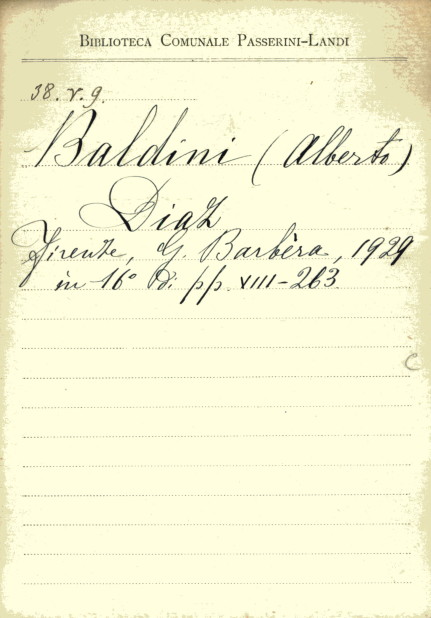 BIBLIOTECA COMUNALE PASSERINI-LANDI
38. V. 9.
Baldini (Alberto)
Diaz
Firenze, G. Barbèra, 1929
in 16° di pp. XIII-263